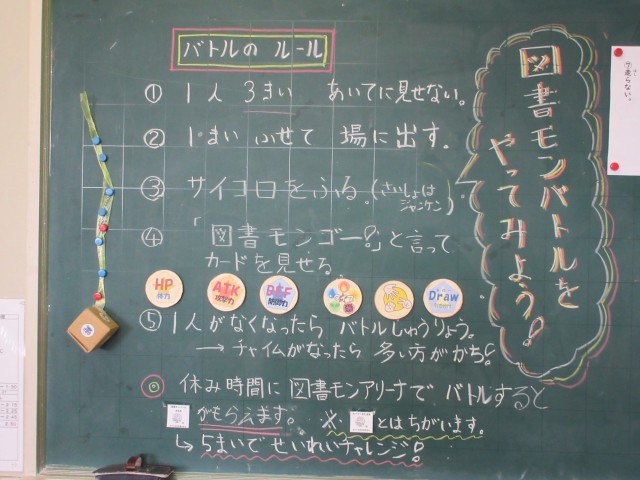 バトルの ルール
① 1人 3まい あいてに見せない。
② 1まい ふせて 場に出す。
③ サイコロをふる。(さいしょはジャンケン)
④ 「図書モンゴー!」と言って
カードを見せる。
HP 体力
ATK 攻撃力
DEF 防御力
Draw
⑤ 1人がなくなったら バトルしゅうりょう。
→ チャイムがなったら 多い方がかち!
◎ 休み時間に 図書モンアリーナで バトルすると
がもらえます。 ※ とはちがいます。
↳ 5まいで せいれいチャレンジ!
図書モンバトルを
やってみよう!
⑦走らない。